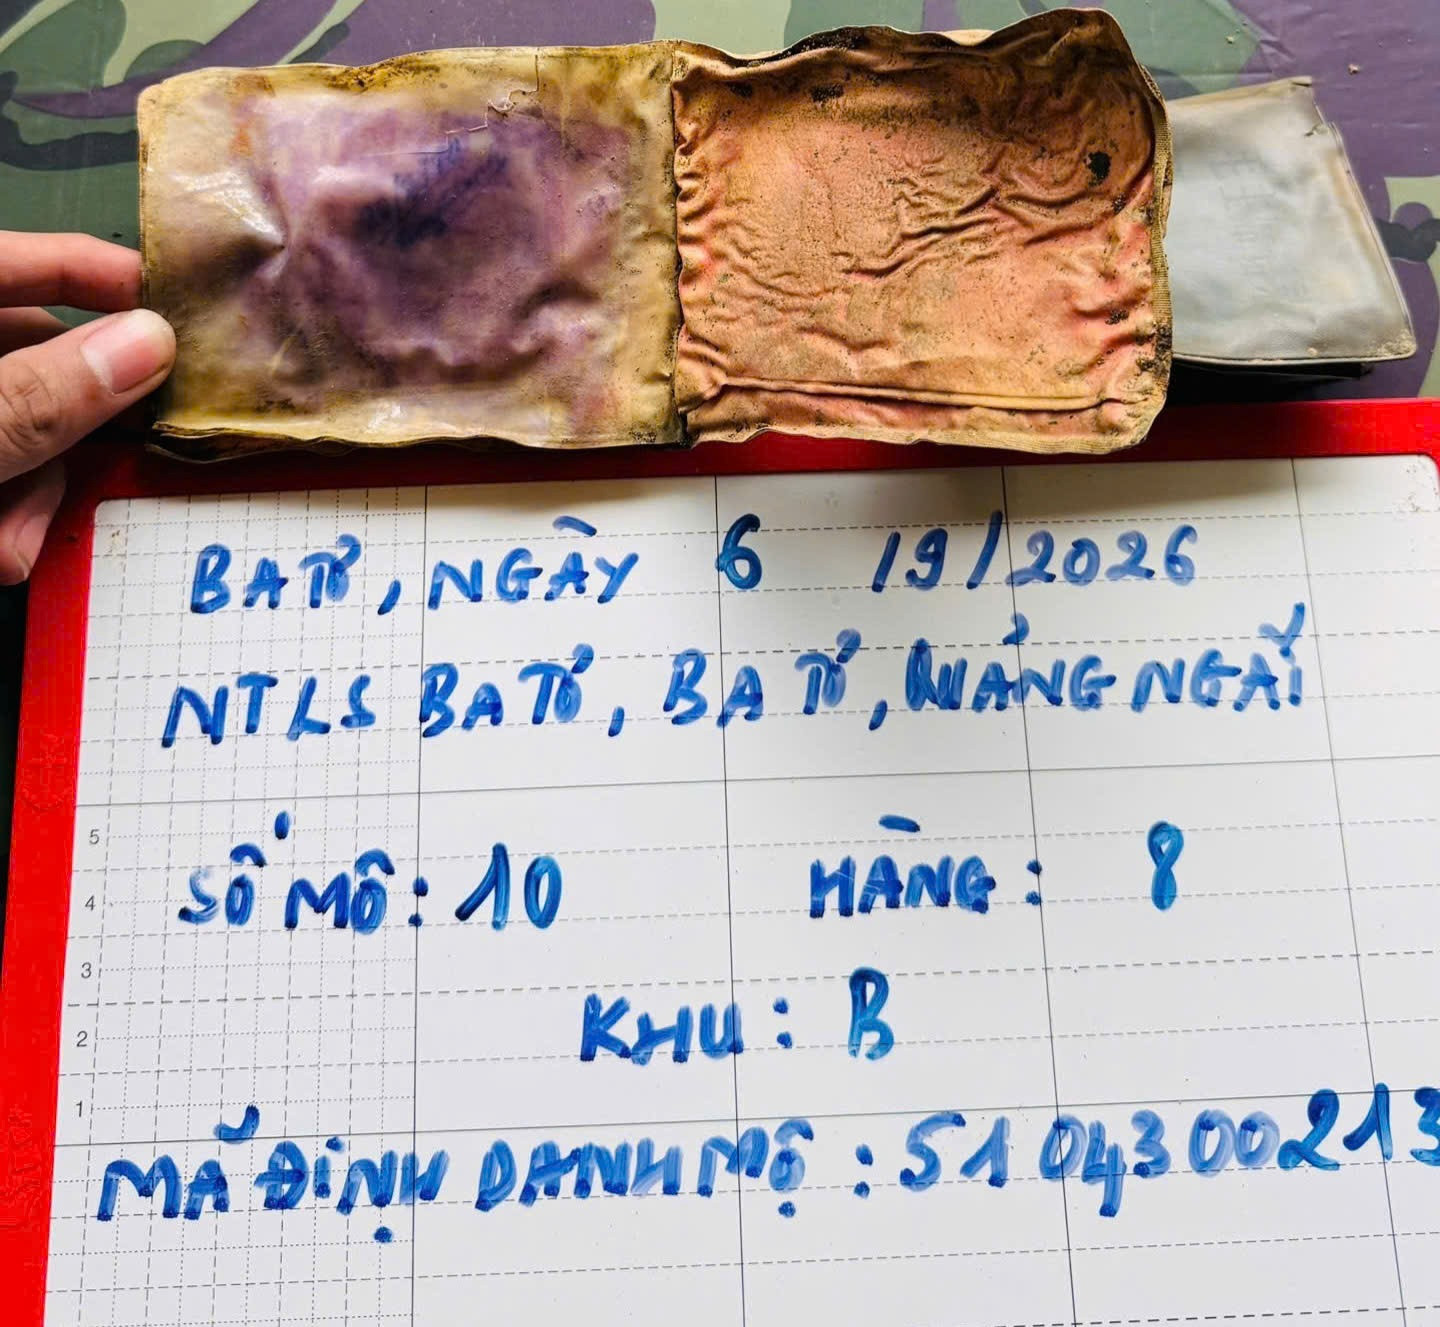 BA TƠ, NGÀY 6 /9/2026
NTLS BA TƠ, BA TƠ, QUẢNG NGÃI
5
SỐ MỘ: 10 HÀNG: 8
4
3
KHU: B
2
1
MÃ ĐỊNH DANH MỘ: 5104300213